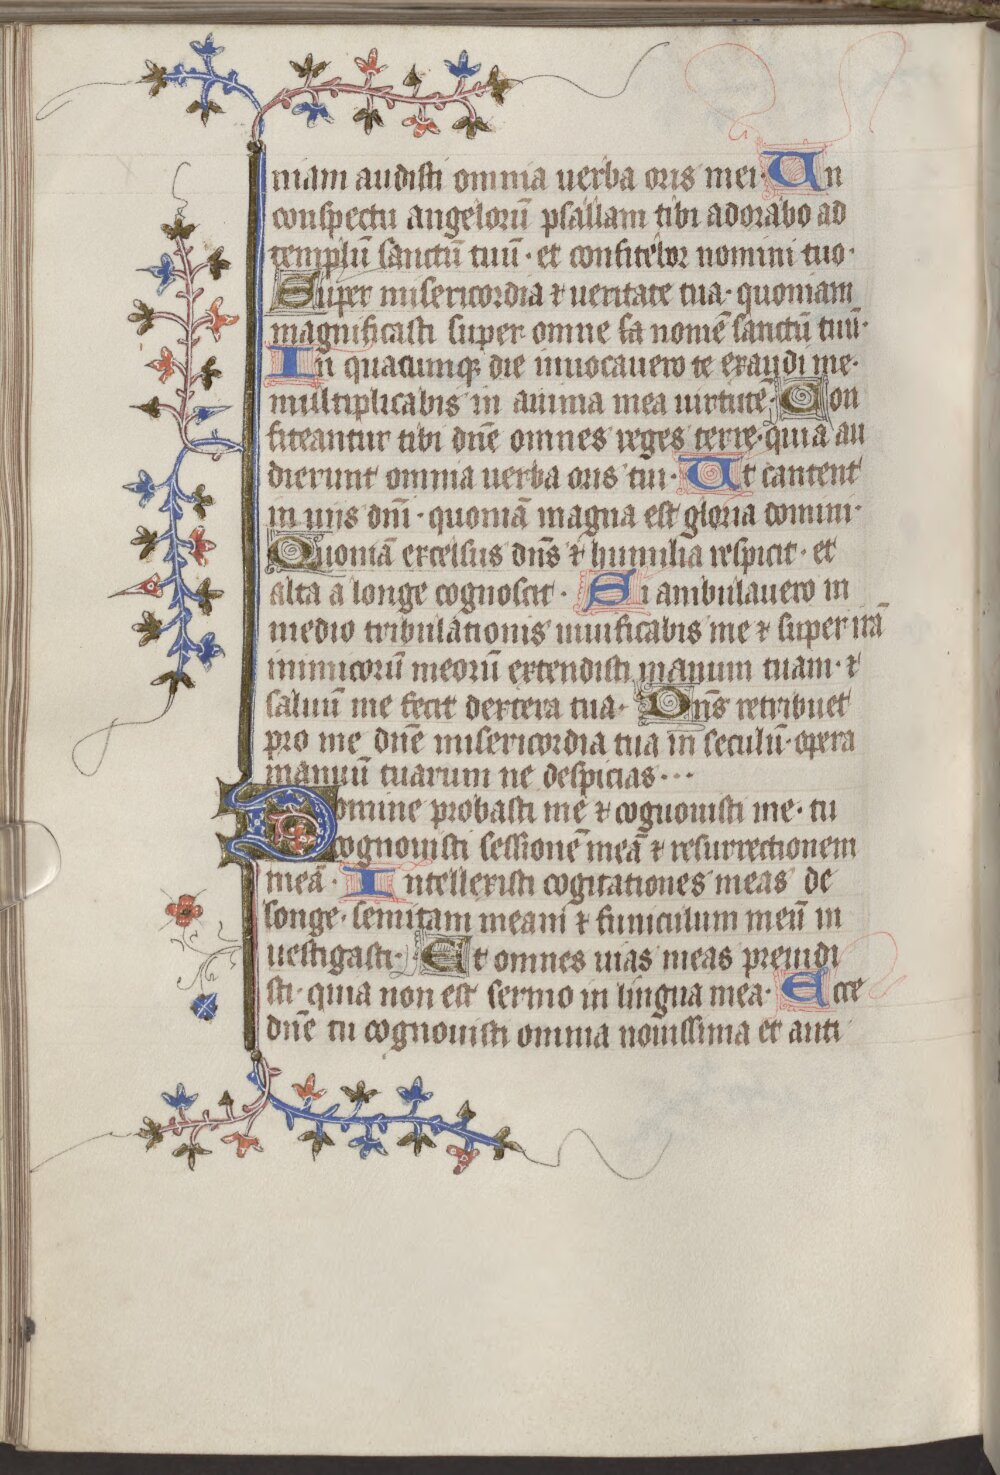 niam audisti omnia uerba oris mei· In
conspectu angelorū psallam tibi adorabo ad
templū sanctū tuū · et confitebor nomini tuo·
Super misericordia ⁊ ueritate tua· quoniam
magnificasti super omne sā nomē sanctū tuū·
In quacumqꝫ die inuocauero te exaudi me·
multiplicabis in anima mea uirtutē· Con
fiteantur tibi dn̄e omnes reges terre· quia au
dierunt omnia uerba oris tui· Et cantent
in uiis dn̄i · quoniā magna est gloria domini·
Quoniā excelsus dn̄s ⁊ humilia respicit · et
alta a longe cognoscit · Si ambulauero in
medio tribulationis uiuificabis me ⁊ super irā
inimicorū meorū extendisti manum tuam · ⁊
saluū me fecit dextera tua· Dn̄s retribuet
pro me dn̄e misericordia tua in seculū· opera
manuū tuarum ne despicias···
Domine probasti me ⁊ cognouisti me· tu
cognouisti sessionē meā ⁊ resurrectionem
meā· Intellexisti cogitationes meas de
longe· semitam meam ⁊ funiculum meū in
uestigasti· Et omnes uias meas preuidi
sti· quia non est sermo in lingua mea· Ecce
dn̄e tu cognouisti omnia nouissima et anti